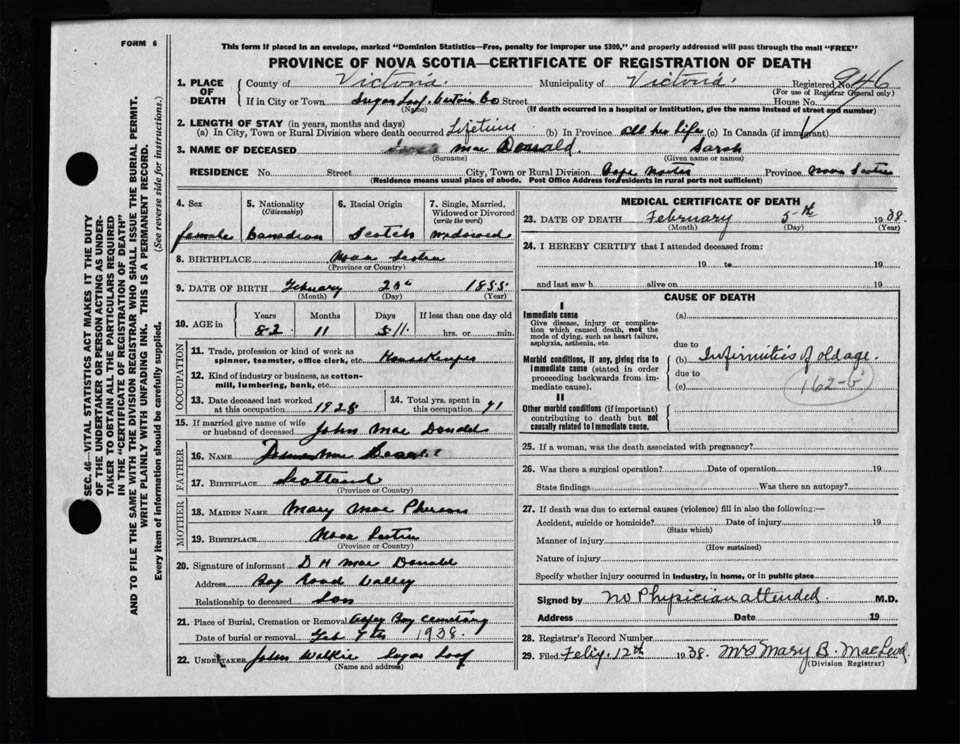 FORM 6
This form if placed in an envelope, marked "Dominion Statistics—Free, penalty for improper use $300," and properly addressed will pass through the mail "FREE"
PROVINCE OF NOVA SCOTIA—CERTIFICATE OF REGISTRATION OF DEATH
1. PLACE OF DEATH
County of Victoria Municipality of Victoria Registered No. 946
(For use of Registrar General only)
If in City or Town Sugar Loaf. Victoria Co Street House No.
(Name) (If death occurred in a hospital or institution, give the name instead of street and number)
2. LENGTH OF STAY (in years, months and days)
(a) In City, Town or Rural Division where death occurred Lifetime (b) In Province all her life (c) In Canada (if immigrant)
3. NAME OF DECEASED Mac Donald. Sarah
(Surname) (Given name or names)
RESIDENCE No. Street City, Town or Rural Division Cape North Province Nova Scotia
(Residence means usual place of abode. Post Office Address for residents in rural parts not sufficient)
4. Sex
female
5. Nationality
(Citizenship)
Canadian
6. Racial Origin
Scotch
7. Single, Married, Widowed or Divorced
(write the word)
Widowed
8. BIRTHPLACE Nova Scotia
(Province or Country)
9. DATE OF BIRTH February 20th 1855
(Month) (Day) (Year)
10. AGE in
Years Months Days If less than one day old
82 11 hrs. or min.
OCCUPATION
11. Trade, profession or kind of work as
spinner, teamster, office clerk, etc. Housekeeper
12. Kind of industry or business, as cotton-
mill, lumbering, bank, etc.
13. Date deceased last worked
at this occupation 1928
14. Total yrs. spent in
this occupation
15. If married give name of wife
or husband of deceased John Mac Donald
FATHER
16. NAME
17. BIRTHPLACE Scotland
(Province or Country)
MOTHER
18. MAIDEN NAME Mary Mac Pherson
19. BIRTHPLACE Nova Scotia
(Province or Country)
20. Signature of informant D H Mac Donald
Address Bay Road Valley
Relationship to deceased Son
21. Place of Burial, Cremation or Removal Aspy Bay Cemetary
Date of burial or removal Feb 7th 1938.
22. UNDERTAKER John Wilkie Sugar Loaf
(Name and address)
MEDICAL CERTIFICATE OF DEATH
23. DATE OF DEATH February 5th 1938.
(Month) (Day) (Year)
24. I HEREBY CERTIFY that I attended deceased from:
19 to 19
and last saw h alive on 19
CAUSE OF DEATH
I
Immediate cause
Give disease, injury or complica-
tion which caused death, not the
mode of dying, such as heart failure,
asphyxia, asthenia, etc.
(a)
due to
Morbid conditions, if any, giving rise to
immediate cause (stated in order
proceeding backwards from im-
mediate cause).
(b) Infirmities of old age.
due to
(c)
162-b
II
Other morbid conditions (if important)
contributing to death but not
causally related to immediate cause.
25. If a woman, was the death associated with pregnancy?
26. Was there a surgical operation? Date of operation 19
State findings Was there an autopsy?
27. If death was due to external causes (violence) fill in also the following:—
Accident, suicide or homicide? Date of injury 19
(State which)
Manner of injury
(How sustained)
Nature of injury
Specify whether injury occurred in industry, in home, or in public place
Signed by No Physician attended. M.D.
Address Date 19
28. Registrar's Record Number
29. Filed 12th 1938. Mrs Mary B.
(Division Registrar)
SEC. 46—VITAL STATISTICS ACT MAKES IT THE DUTY
OF THE UNDERTAKER OR PERSON ACTING AS UNDER-
TAKER TO OBTAIN ALL THE PARTICULARS REQUIRED
IN THE "CERTIFICATE OF REGISTRATION OF DEATH"
AND TO FILE THE SAME WITH THE DIVISION REGISTRAR WHO SHALL ISSUE THE BURIAL PERMIT.
WRITE PLAINLY WITH UNFADING INK. THIS IS A PERMANENT RECORD.
Every item of information should be carefully supplied. (See reverse side for instructions.)